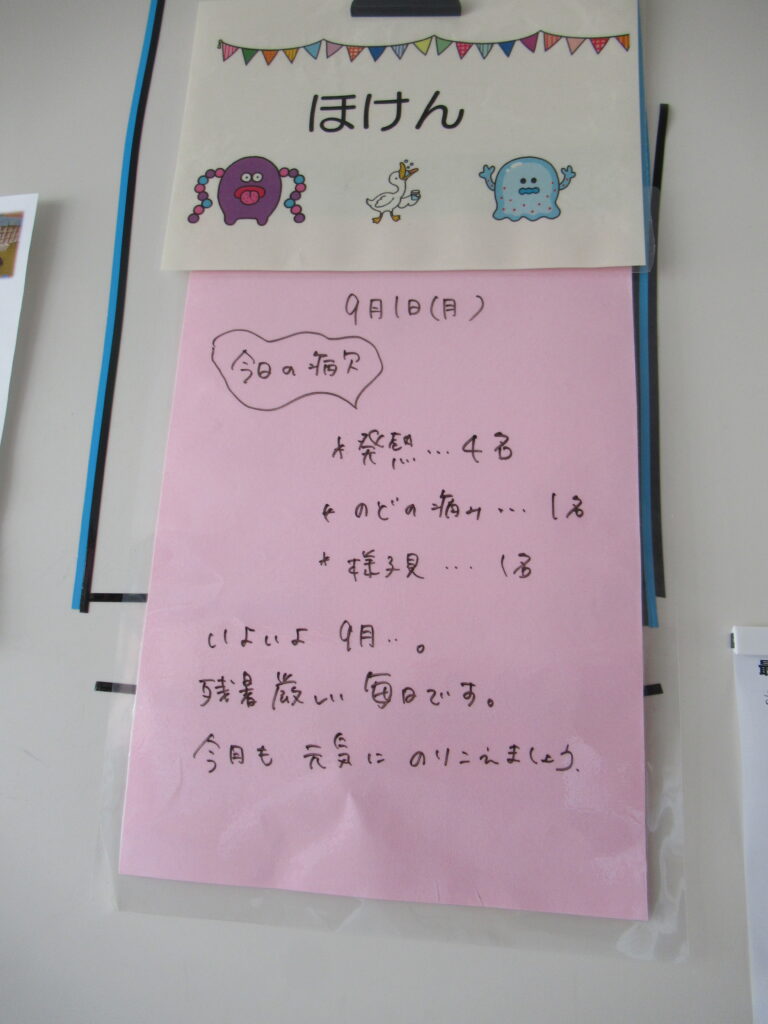 ほけん
9月1日(月)
今日の病欠
*発熱…4名
*のどの痛み…1名
*様子見…1名
いよいよ 9月‥。
残暑厳しい毎日です。
今月も 元気に のりこえましょう.
最